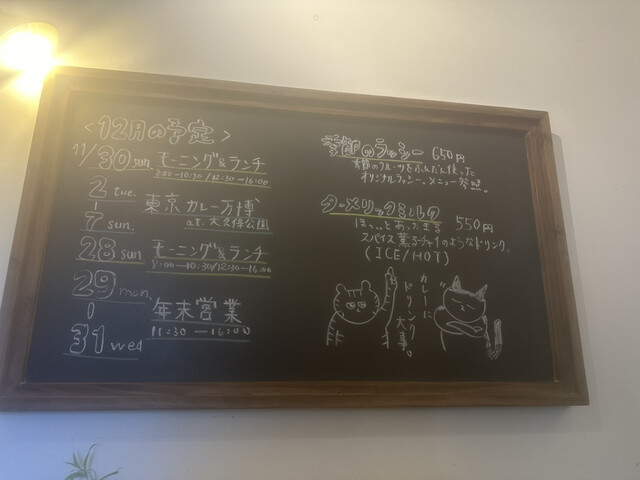 <12月の予定>
11/30 sun. モーニング&ランチ
8:00-10:30/12:30-16:00
2 tue.
|
7 sun.
東京カレー万博
at. 大久保公園
28 sun. モーニング&ランチ
8:00-10:30/12:30-16:00
29 mon.
|
31 wed
年末営業
11:30-16:00
季節のラッシー 650円
季節のフルーツをふんだん使った
オリジナルラッシー。メニュー参照。
ターメリックミルク 550円
ほっっとあったまる
スパイス薫るチャイのようなドリンク。
(ICE/HOT)
カレーに
ドリンク
大事。